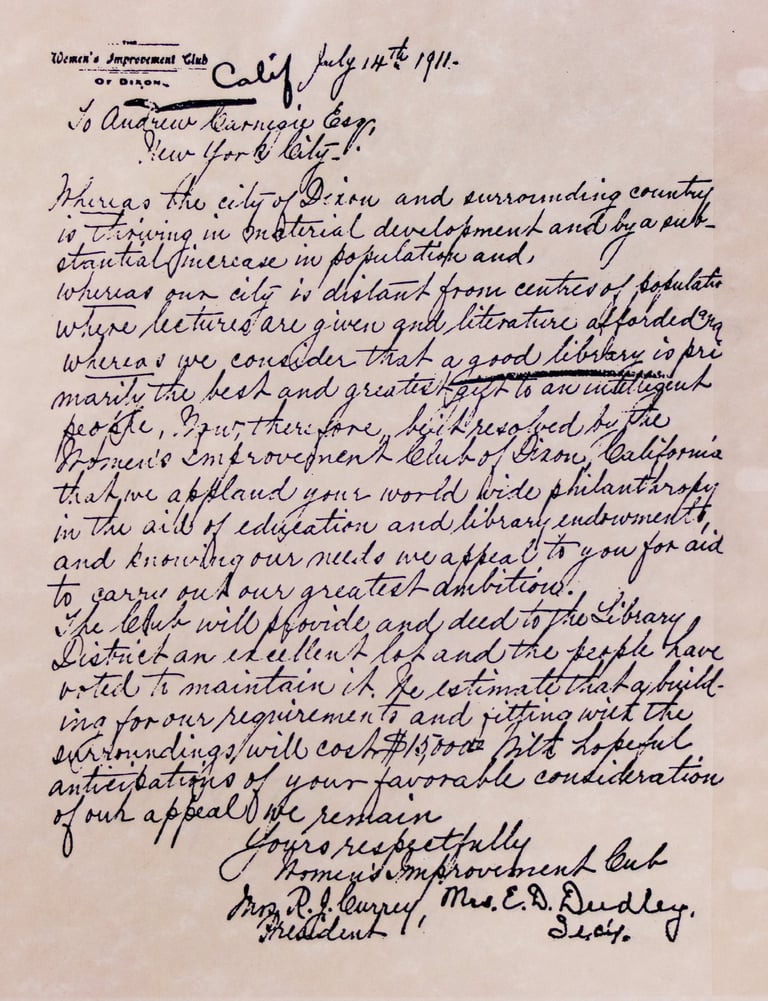 THE
Women's Improvement Club
OF DIXON
Calif July 14th 1911.
To Andrew Carnegie Esq,
New York City.
Whereas the city of Dixon and surrounding country
is thriving in material development and by a sub-
stantial increase in population and,
whereas our city is distant from centres of populatio
where lectures are given and literature afforded and
whereas we consider that a good library is pri
marily the best and greatest gift to an intelligent
people, Now, therefore, be it resolved by the
Women's Improvement Club of Dixon, California
that we applaud your world wide philanthropy
in the aid of education and library endowments,
and knowing our needs we appeal to you for aid
to carry out our greatest ambition.
The Club will provide and deed to the Library
District an excellent lot and the people have
voted to maintain it. We estimate that a build-
ing for our requirements and fitting with the
surroundings will cost $15,000 00 With hopeful
anticipations of your favorable consideration
of our appeal we remain
Yours respectfully
Women's Improvement Cub
Mrs. R. J. Currey, Mrs. E. D. Dudley,
President Sec'y.